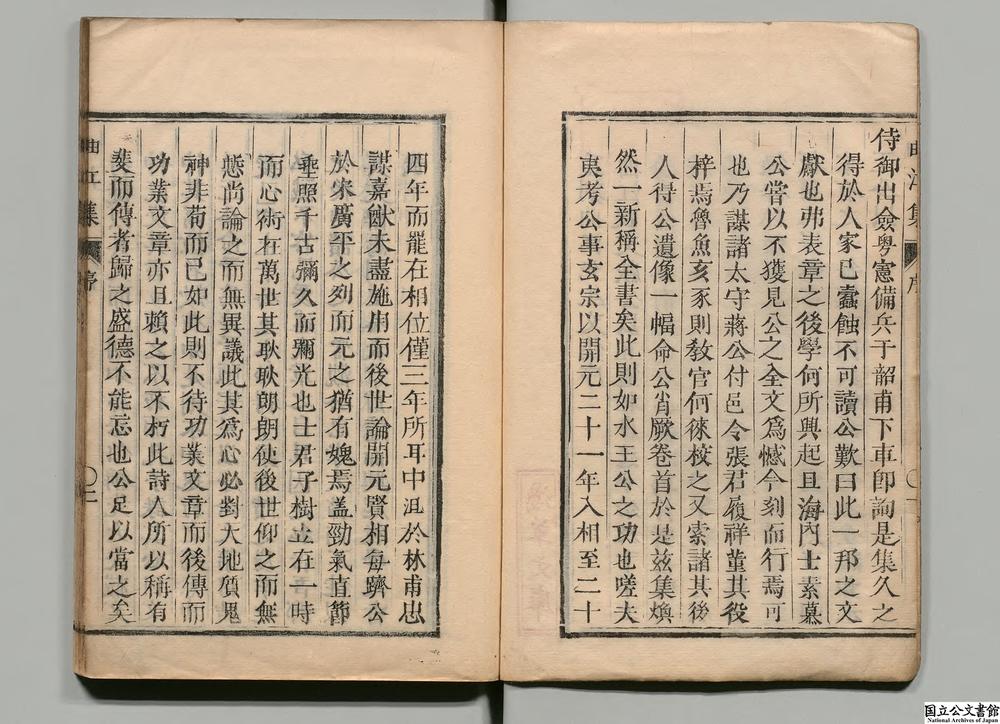 侍御出僉粵憲備兵于韶甫下車卽詢是集久之
得於人家已蠹蝕不可讀公歎曰此一邦之文
獻也弗表章之後學何所興起且海內士素慕
公嘗以不獲見公之全文爲憾令刻而行焉可
也乃謀諸太守蔣公付邑令張君履祥董其役
梓焉魯魚亥豕則教官何徠校之又索諸其後
人得公遺像一幅命公肖厥卷首於是茲集煥
然一新稱全書矣此則如水王公之功也嗟夫
夷考公事玄宗以開元二十一年入相至二十
曲江集
序
四年而罷在相位僅三年所耳中沮於林甫忠
謀嘉猷未盡施用而後世論開元賢相每躋公
於宋廣平之列而元之猶有媿焉盖勁氣直節
垂照千古彌久而彌光也士君子樹立在一時
而心術在萬世其耿耿朗朗使後世仰之而無
慭尚論之而無異議此其爲心必對天地質鬼
神非苟而已如此則不待功業文章而後傳而
功業文章亦且賴之以不朽此詩人所以稱有
斐而傳者歸之盛德不能忘也公足以當之矣
曲江集
序
二
国立公文書館
National Archives of Japan